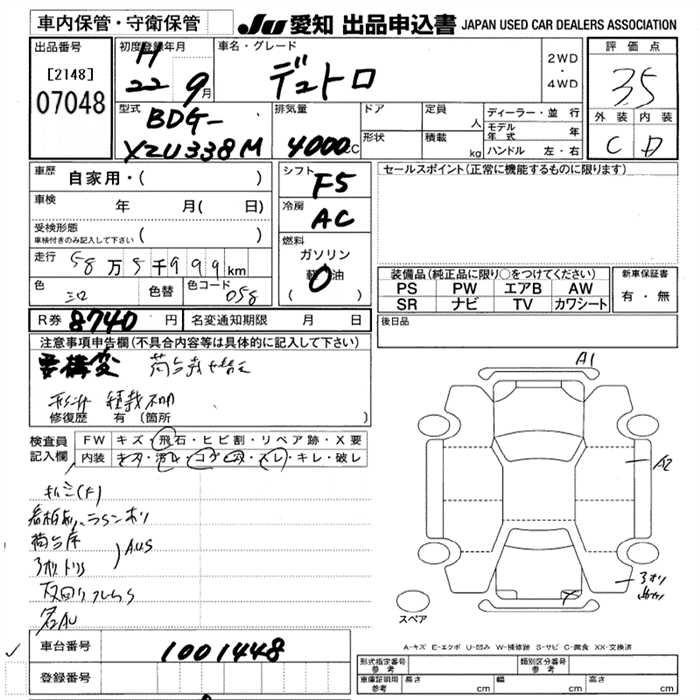 車内保管・守衛保管
JU 愛知 出品申込書 JAPAN USED CAR DEALERS ASSOCIATION
出品番号
[2148]
07048
初度登録年月
H
22 9月
車名・グレード
デュトロ
2WD
・
4WD
評価点
3.5
外装 内装
C D
型式
BDG-
XZU338M
排気量
4000CC
ドア
定員
人
形状
積載
kg
ディーラー・並行
モデル年式 年
ハンドル 左・右
車歴 自家用・( )
車検 年 月( 日)
受検形態
車検付きのみ記入して下さい ( )
走行 58万5千999km
色 シロ 色替 色コード 058
シフト F5
冷房 AC
燃料
ガソリン
軽油
( )
セールスポイント(正常に機能するものに限ります)
装備品(純正品に限り○をつけてください)
PS PW エアB AW
SR ナビ TV カワシート
新車保証書
有・無
R券 8740円 名変通知期限 月 日
後日品
注意事項申告欄(不具合内容等は具体的に記入して下さい)
要構変
積載不明
修復歴 有(箇所 )
検査員記入欄
FW キズ・飛石・ヒビ割・リペア跡・X要
内装 キズ・汚レ・コゲ・穴・スレ・キレ・破レ
荷台床
AUS
A1
A2
スペア
A-キズ E-エクボ U-凹み W-補修跡 S-サビ C-腐食 XX-交換済
車台番号 1001448
登録番号
形式指定番号 参考
類別区分番号 参考
車庫証明用 参考 長さ cm 幅 cm 高さ cm